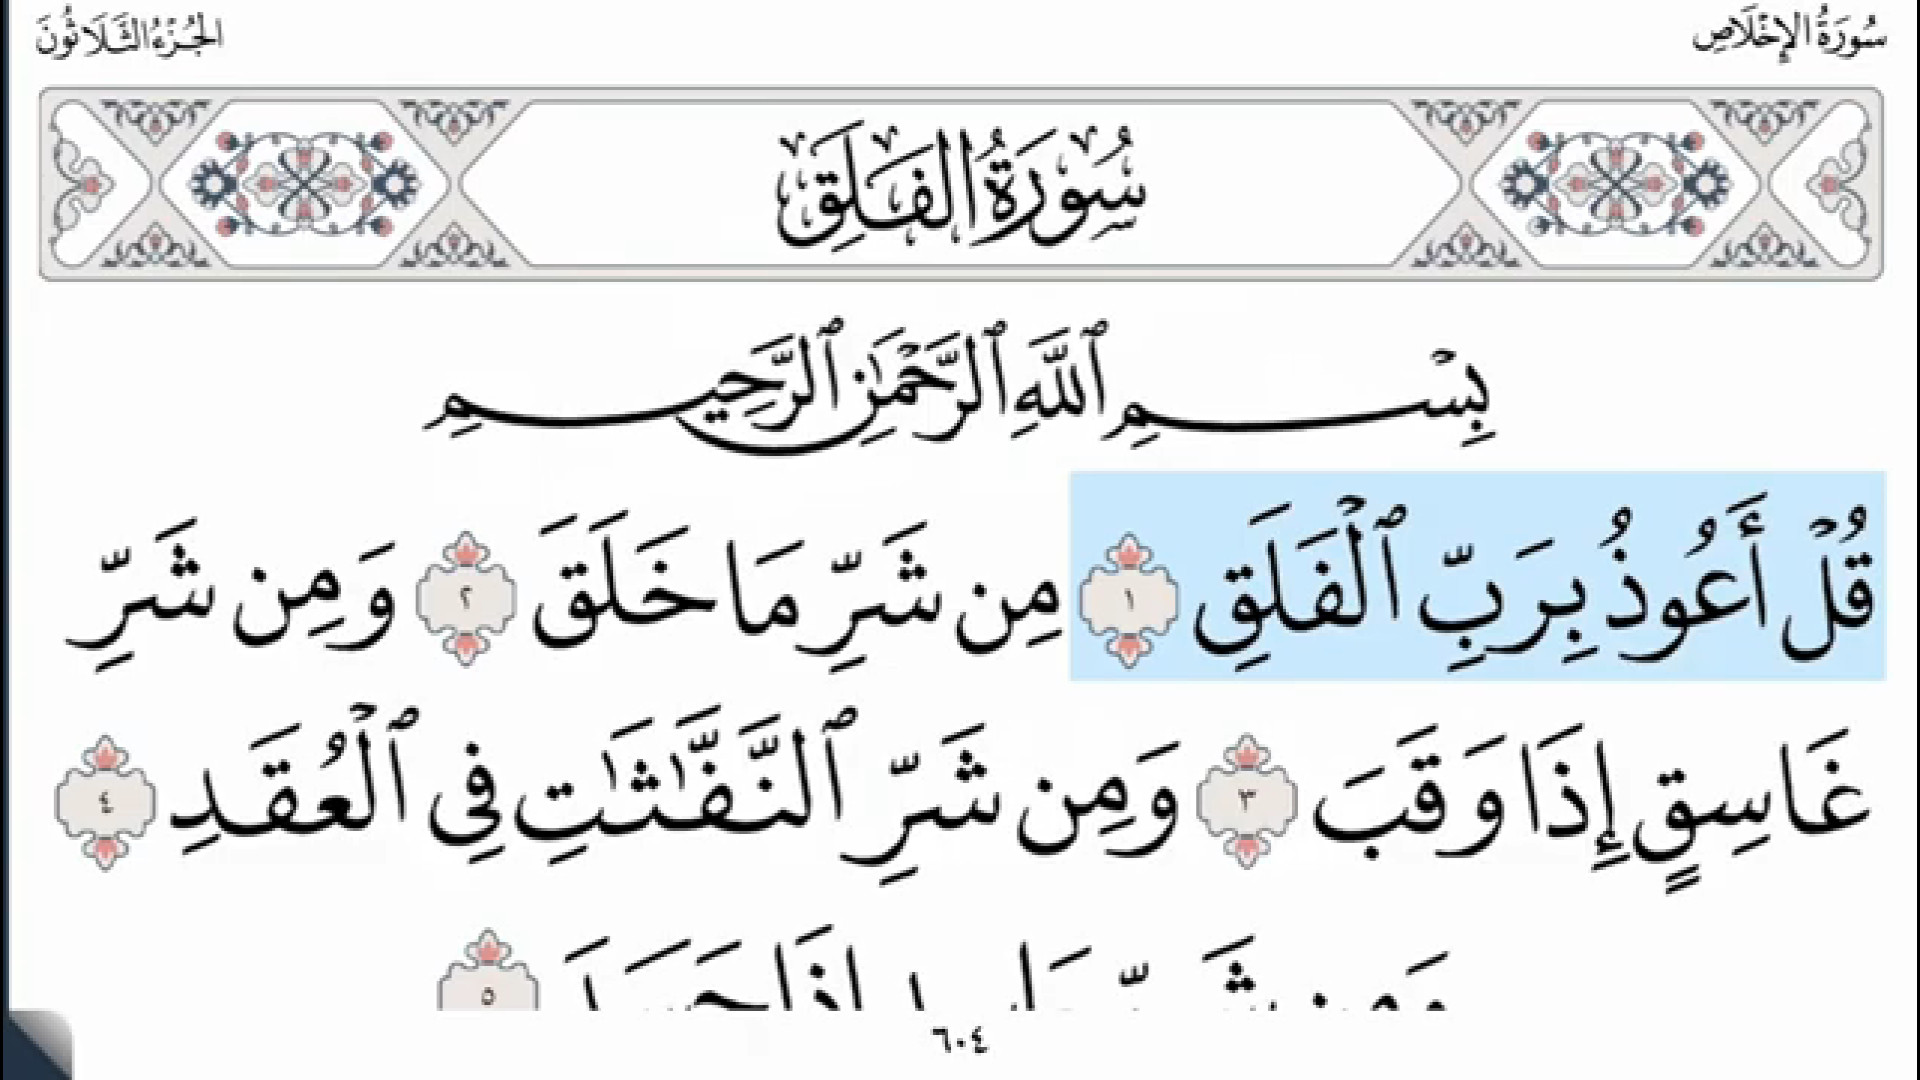 سُورَةُ الإِخْلَاصِ الجُزْءُ الثَّلَاثُونَ
سُورَةُ الفَلَقِ
بِسْمِ ٱللَّهِ ٱلرَّحْمَٰنِ ٱلرَّحِيمِ
قُلْ أَعُوذُ بِرَبِّ ٱلْفَلَقِ ١ مِن شَرِّ مَا خَلَقَ ٢ وَمِن شَرِّ
غَاسِقٍ إِذَا وَقَبَ ٣ وَمِن شَرِّ ٱلنَّفَّٰثَٰتِ فِى ٱلْعُقَدِ ٤
وَمِن شَرِّ حَاسِدٍ إِذَا حَسَدَ ٥
٦٠٤